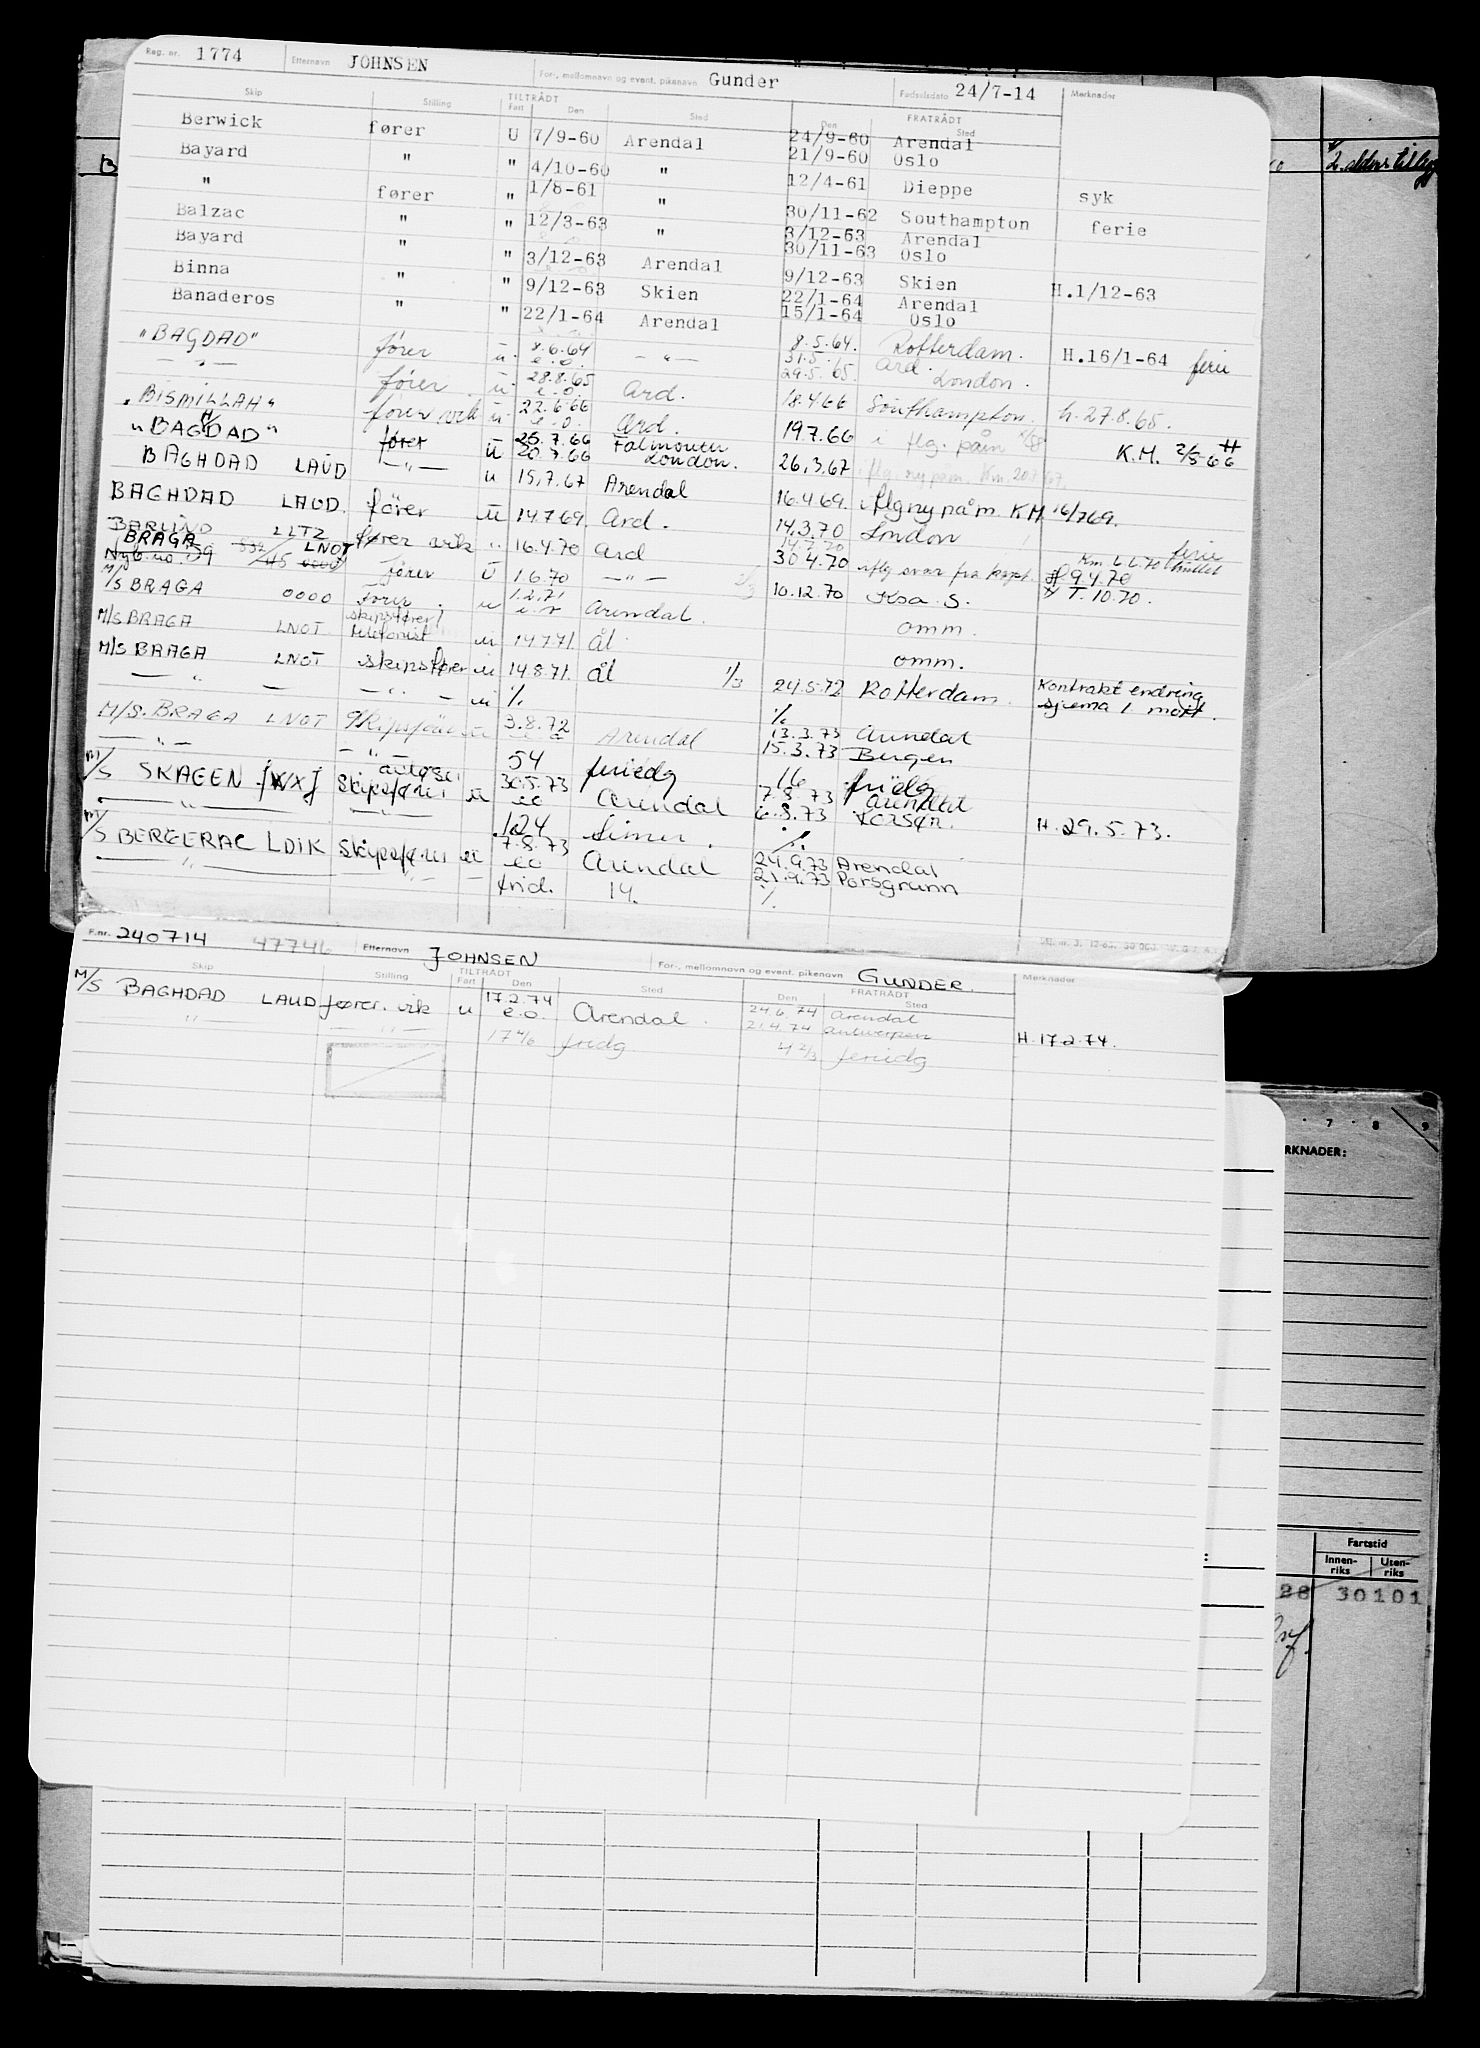 Reg. nr. 1774 Etternavn JOHNSEN For-, mellomnavn og event. pikenavn Gunder Fødselsdato 24/7-14 Merknader
Skip Stilling TILTRÅDT Fart Den Sted FRATRÅDT Den Sted
Berwick fører U 7/9-60 Arendal 24/9-60 Arendal
21/9-60 Oslo
Bayard " " 4/10-60 " 12/4-61 Dieppe syk
" fører " 1/8-61 " 30/11-62 Southampton ferie
Balzac " " 12/3-63 " 3/12-63 Arendal
30/11-63 Oslo
Bayard " " 3/12-63 Arendal 9/12-63 Skien H.1/12-63
Binna " " 9/12-63 Skien 22/1-64 Arendal
15/1-64 Oslo
Banaderos " " 22/1-64 Arendal 8.5.64. Rotterdam. H.16/1-64 ferie
"BAGDAD" fører u 8.6.64 e.o. -"- 31.5. Ard.
29.5.65. London.
-"- fører u. 28.8.65 e.o. Ard. 18.4.66 Southampton. h. 27.8.65.
"BISMILLAH" fører vik u 22.6.66 e.o. Ard. 19.7.66 i flg. påm
"BAGHDAD" fører u 25.7.66 Falmouth K.M. 2/5-66
20.7.66 London. 26.3.67
BAGHDAD LAUD -"- u 15.7.67 Arendal 16.4.69. iflg ny påm KM 16/769.
BAGHDAD LAUD. fører u 14.7.69. Ard. 14.3.70 London
BARLIND LLTZ fører vik " 16.4.70 Ard 30.4.70
BRAGA LNOT
Nyb. no. 59 fører u 1.6.70 -"- 10.12.70 Ksa. S. 1.10.70.
M/S BRAGA 0000 fører u 1.2.71 Arendal. omm.
M/S BRAGA LNOT skipsfører/telefonist u 14.7.71. ål omm.
M/S BRAGA LNOT skipsfører u 14.8.71. ål 1/3 24.5.72 Rotterdam. Kontrakt endring
-"- -"- u ./. ./. sjema 1 mott.
M/S. BRAGA LNOT Skipsfører u 3.8.72 Arendal 13.3.73 Arendal
15.3.73 Bergen
-"- -"- 54 feriedg 16 fridg
M/S SKAGEN JWXJ Skipsfører u 30.5.73 eo Arendal 7.8.73 Arendal
6.8.73 H. 29.5.73.
-"- -"- 124 timer. ./.
M/S BERGERAC LDIK Skipsfører u 7.8.73 eo Arendal 24.9.73 Arendal
21.9.73 Porsgrunn
-"- -"- frid. 14. ./.
F.nr. 240714 47746 Etternavn JOHNSEN For-, mellomnavn og event. pikenavn GUNDER. Merknader
Skip Stilling TILTRÅDT Fart Den Sted FRATRÅDT Den Sted
M/S BAGHDAD LAUD fører. vik u 17.2.74 e.o. Arendal. 24.6.74 Arendal
21.4.74 Antwerpen H. 17.2.74.
" -"- 17 4/6 fridg 4 2/3 feriedg
7 8 9
RKNADER:
Fartstid
Innen-riks Uten-riks
28 30101